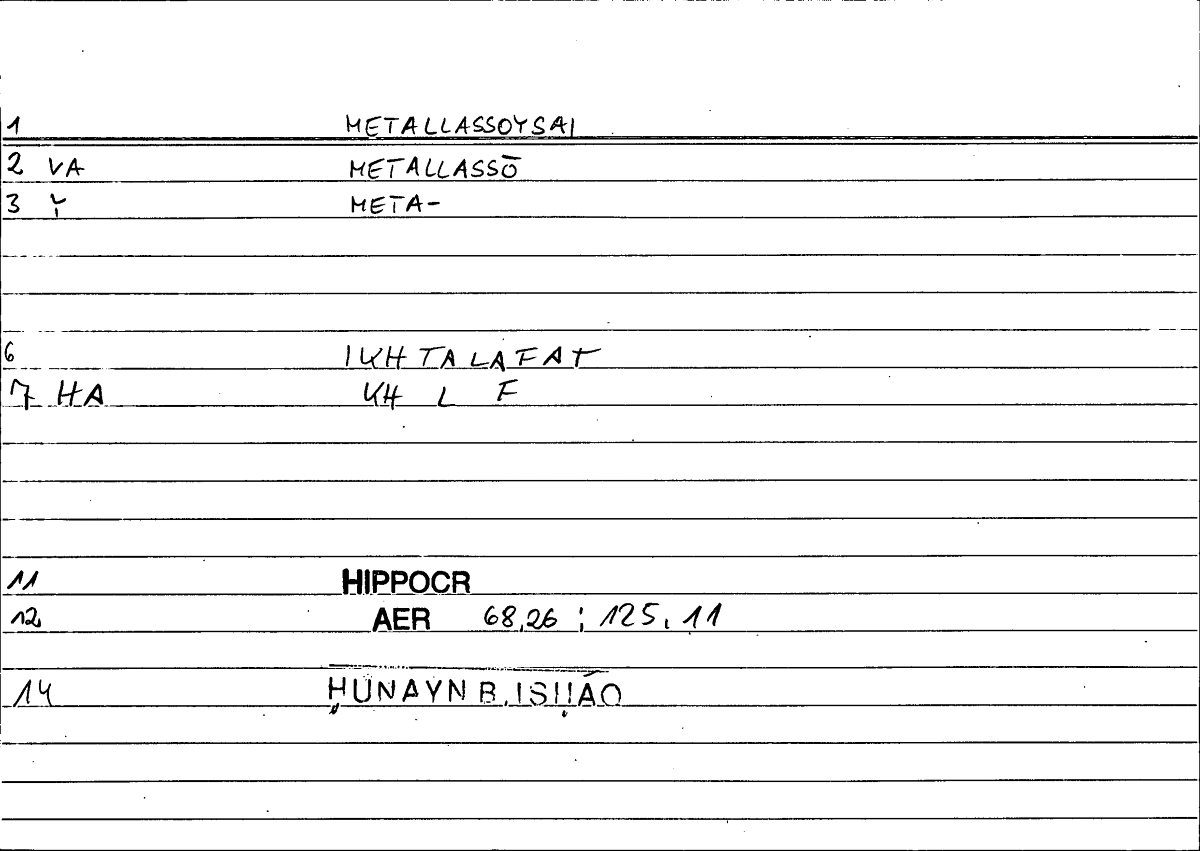 1 METALLASSOYSAI
2 VA METALLASSŌ
3 Y META-
6 IKHTALAFAT
7 HA KH L F
11 HIPPOCR
12 AER 68,26 ; 125,11
14 ḤUNAYN B. ISḤĀQ